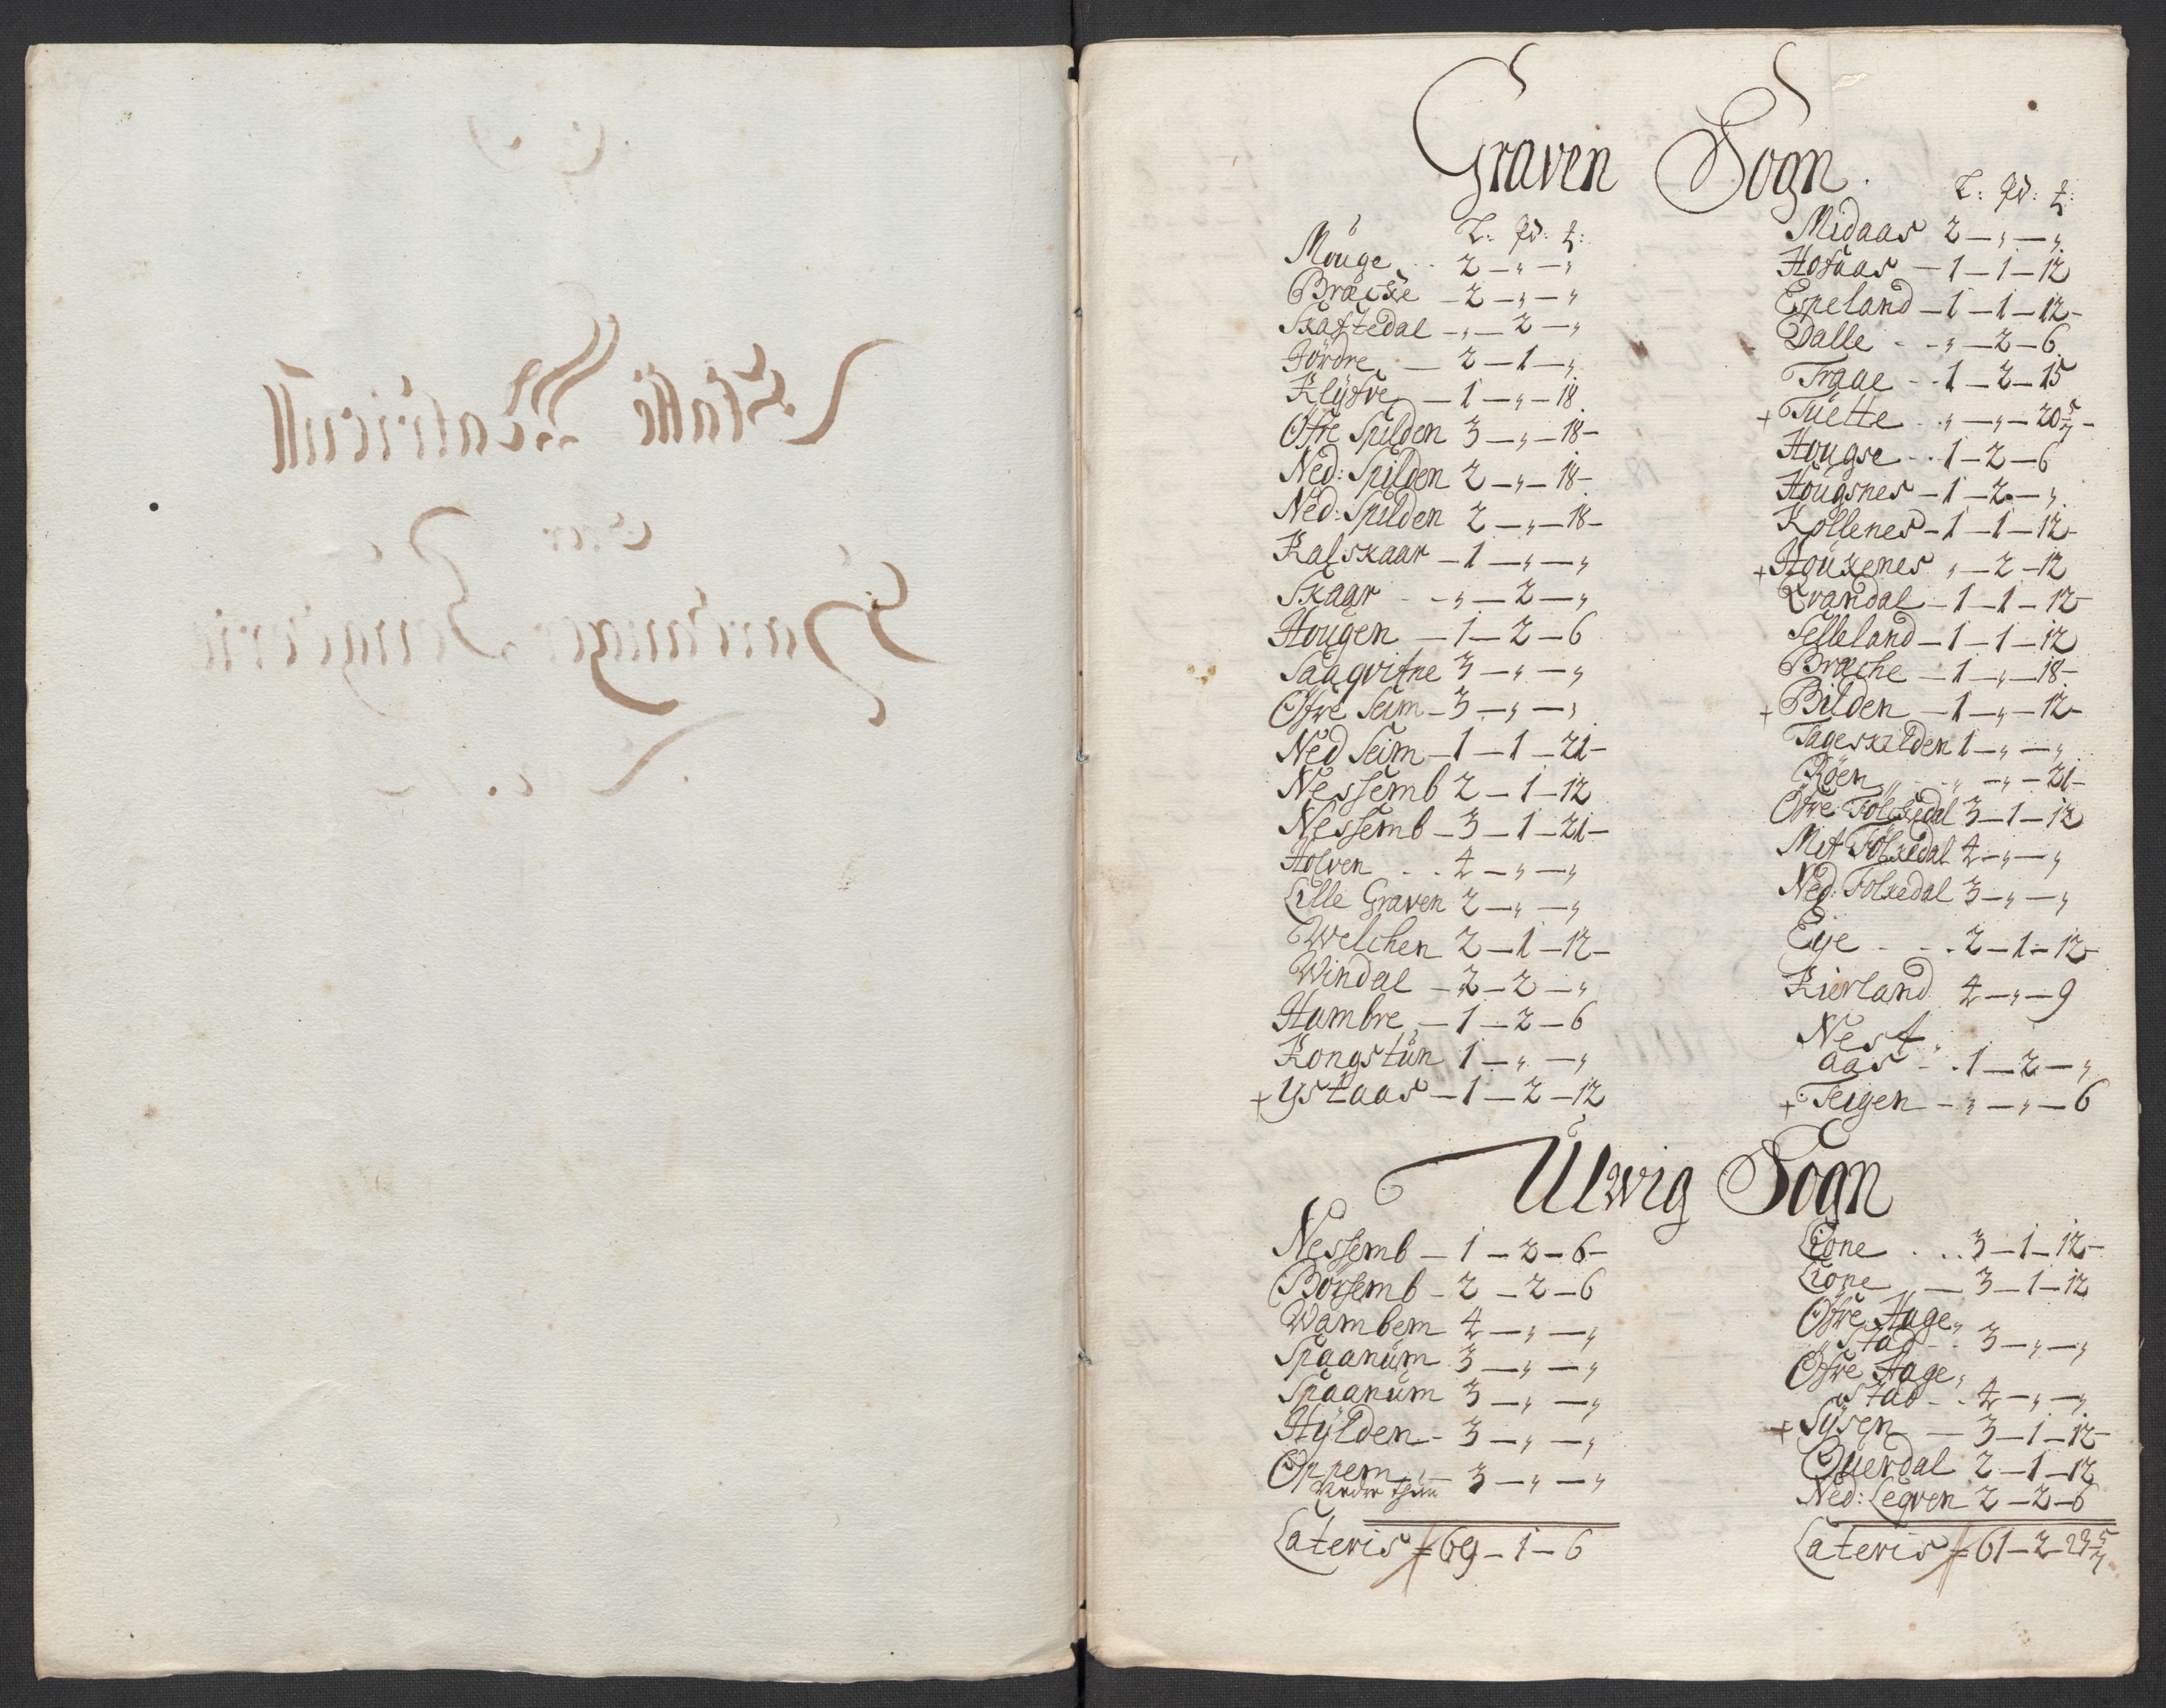 Graven Sogn.
L: Pd: ℔:
Mouge . . 2 — " — "
Bracke — 2 — " — "
Skaftedal — " — 2 — "
Jördre — 2 — 1 — "
Klÿfve — 1 — " — 18
Ofre Spilden 3 — " — 18 —
Ned: Spilden 2 — " — 18 —
Ned: Spilden 2 — " — 18 —
Kalskaar — 1 — " — "
Skaar - - " — 2 — "
Hougen — 1 — 2 — 6
Saaqvitne 3 — " — "
Ofre Seim — 3 — " — "
Ned Seim — 1 — 1 — 21 —
Nessemb 2 — 1 — 12
Nessemb — 3 — 1 — 21 —
Holven . . 4 — " — "
Lille Graven 2 — " — "
Welchen 2 — 1 — 12 —
Windal — 2 — 2 — "
Hambre — 1 — 2 — 6
Kongstun 1 — " — "
+ Ystaas — 1 — 2 — 12
L: Pd: ℔:
Midaas 2 — " — "
Hofaas — 1 — 1 — 12
Espeland — 1 — 1 — 12 —
Dalle - - " — 2 — 6
Traae - - 1 — 2 — 15
+ Tuette . " — " — 20 5/7 —
Hougse . . 1 — 2 — 6
Hougsnes — 1 — 2 — "
Kollenes — 1 — 1 — 12
+ Houxenes " — 2 — 12
Qvandal — 1 — 1 — 12 —
Selleland — 1 — 1 — 12
Bræche — 1 — " — 18 —
+ Bilden — 1 — " — 12 —
Tageskilden 1 — " — "
Röen " - - " — " — 21 —
Ofre Folckedal 3 — 1 — 12
Mit Folkedal 4 — " — "
Ned: Folkedal 3 — " — "
Eye - - . 2 — 1 — 12 —
Kierland 4 — " — 9
Nest "
aas - . 1 — 2 — "
+ Teigen — " — " — 6
Ulwig Sogn
Nessemb — 1 — 2 — 6 —
Borsemb — 2 — 2 — 6
Wambem 4 — " — "
Spaanum 3 — " — "
Spaanum 3 — " — "
Hÿlden — 3 — " — "
Oppem — 3 — " — "
Nedre
Lateris = 69 — 1 — 6
Lione . . . 3 — 1 — 12 —
Lione — 3 — 1 — 12
Ofre Hage "
" stad - . 3 — " — "
Ofre Hage "
stad - . 4 — " — "
+ Sÿsen — 3 — 1 — 12 —
Querdal 2 — 1 — 12
Ned: Leqven 2 — 2 — 6
Lateris = 61 — 2 — 23 5/7